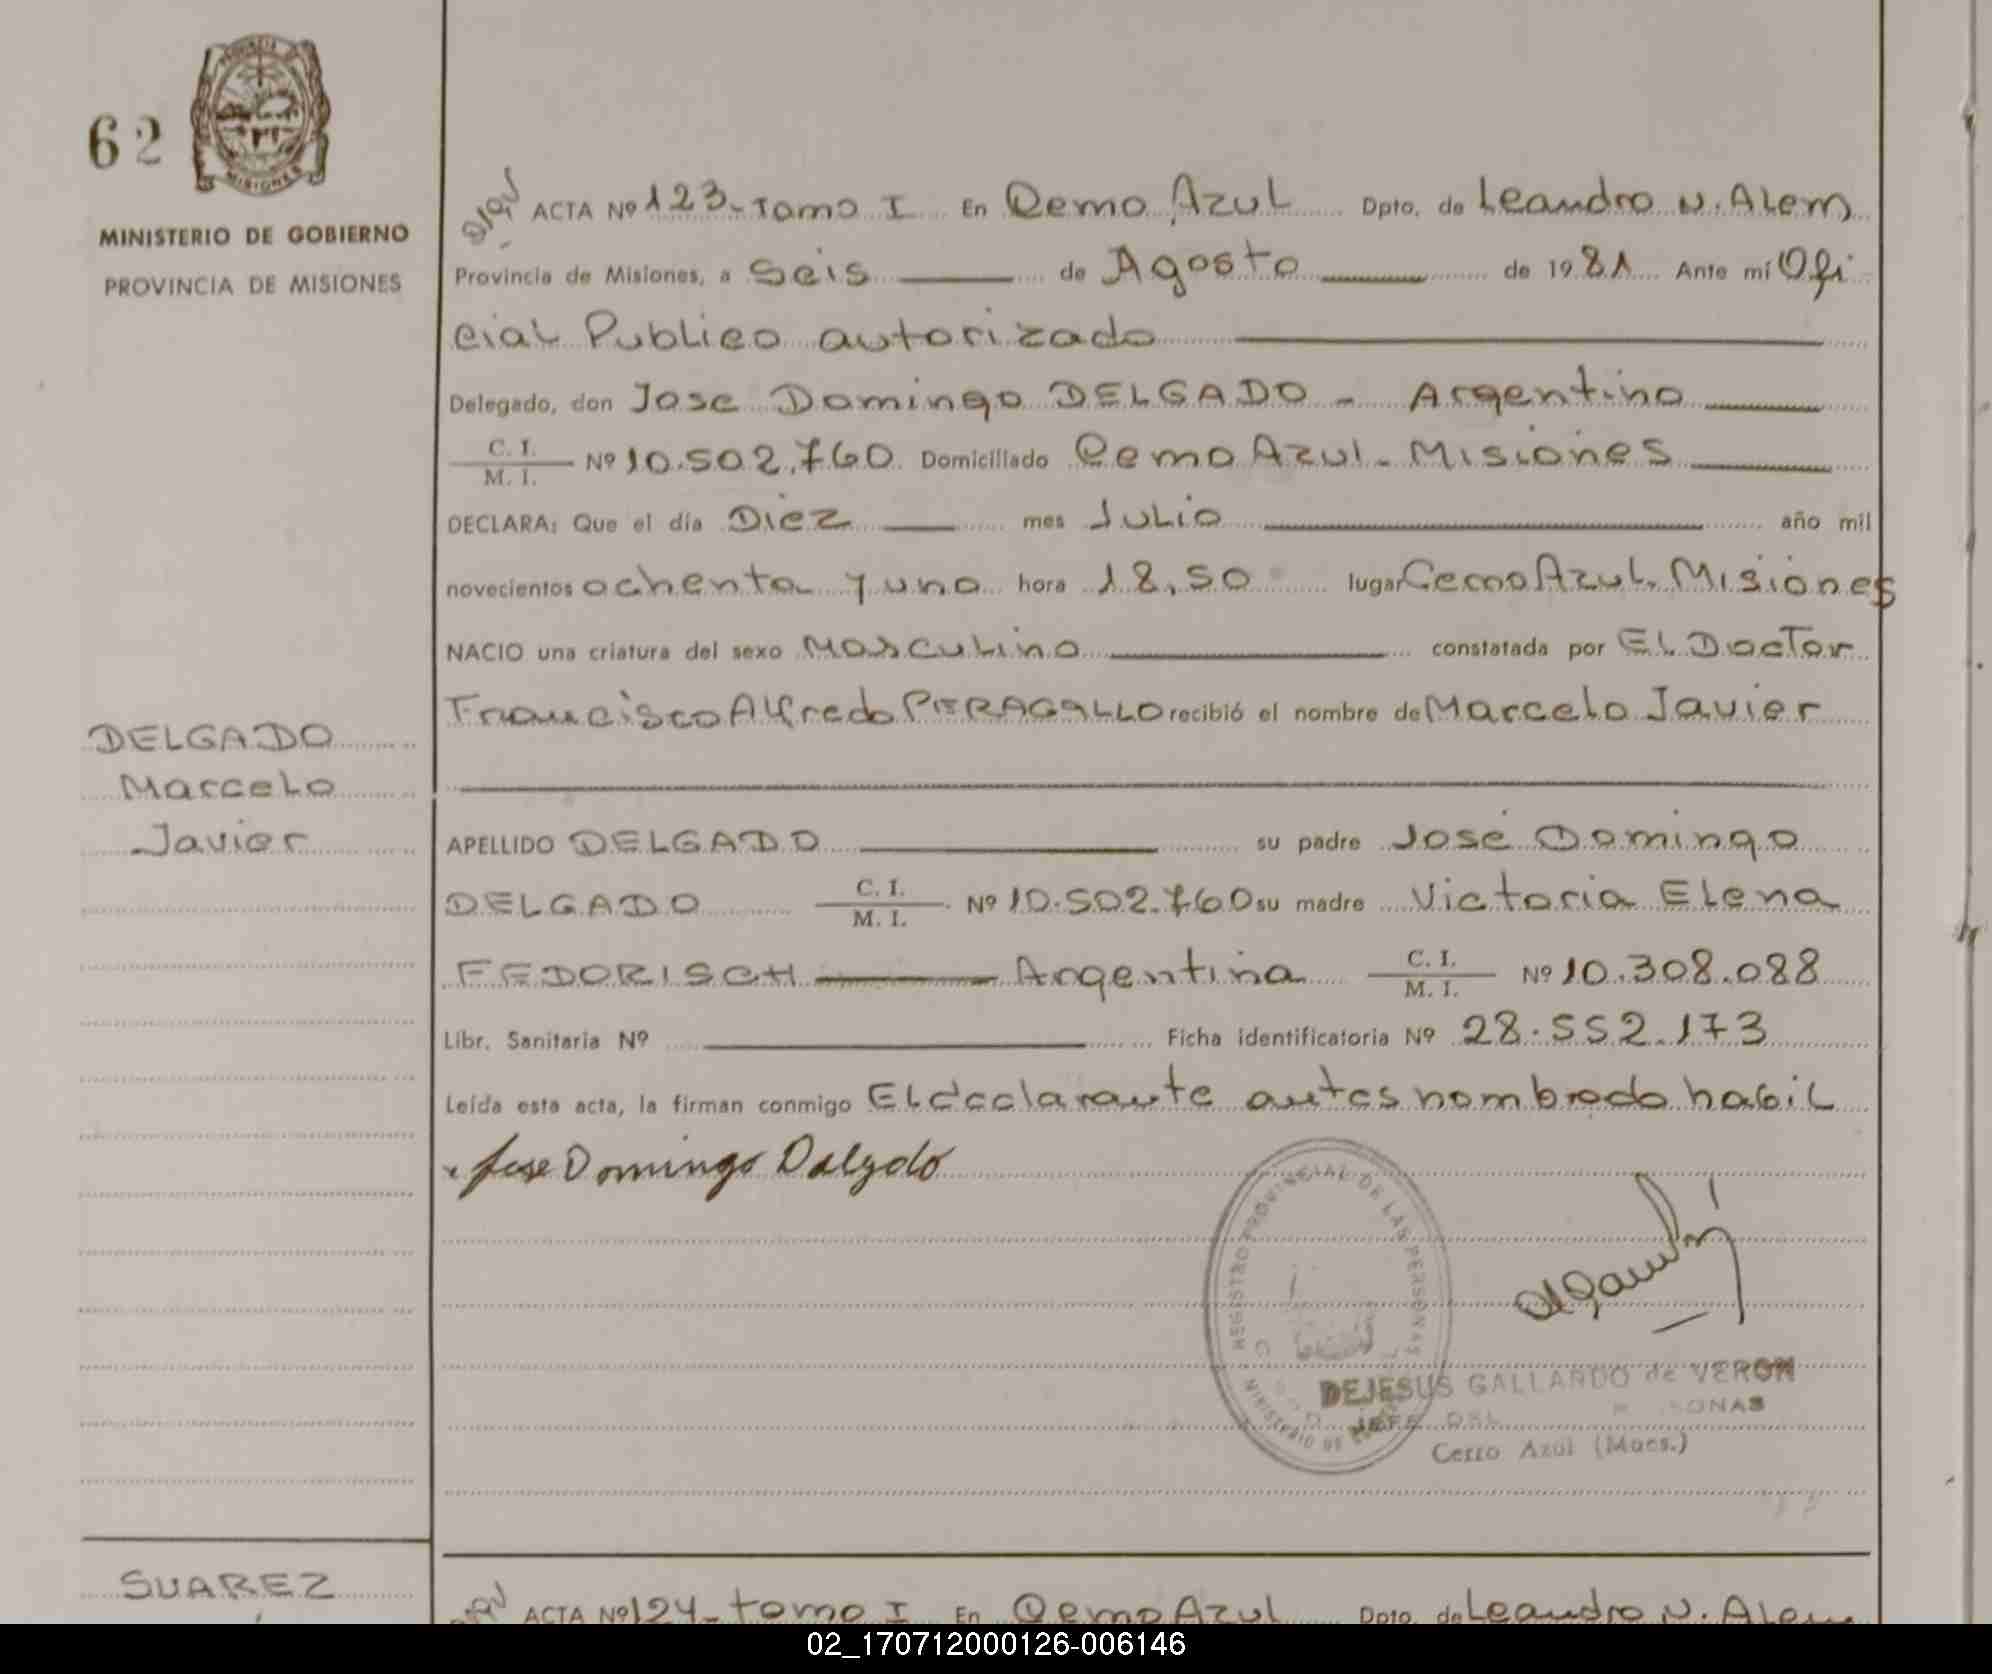 62
PROVINCIA DE
MISIONES
MINISTERIO DE GOBIERNO
PROVINCIA DE MISIONES
ACTA Nº 123-Tomo I En Cerro Azul Dpto. de Leandro N. Alem
Provincia de Misiones, a Seis de Agosto de 1981 Ante mí Ofi
cial Publico autorizado
Delegado, don Jose Domingo DELGADO - Argentino
C. I.
M. I. Nº 10.502.760 Domiciliado Cerro Azul - Misiones
DECLARA: Que el día Diez mes Julio año mil
novecientos ochenta y uno hora 18,50 lugar Cerro Azul. Misiones
NACIO una criatura del sexo Masculino constatada por El Doctor
Francisco Alfredo PERAGALLO recibió el nombre de Marcelo Javier
DELGADO
Marcelo
Javier
APELLIDO DELGADO su padre José Domingo
DELGADO C. I. M. I. Nº 10.502.760 su madre Victoria Elena
FEDORISCH Argentina C. I. M. I. Nº 10.308.088
Libr. Sanitaria Nº Ficha identificatoria Nº 28.552.173
Leída esta acta, la firman conmigo El declarante antes nombrado habil
x Jose Domingo Delgado
REGISTRO PROVINCIAL DE LAS PERSONAS
MINISTERIO DE
DEJESUS GALLARDO de VERON
JEFE DEL
Cerro Azul (Mnes.)
SUAREZ
ACTA Nº 124- tomo I En Cerro Azul Dpto. de Leandro N. Alem
02_170712000126-006146